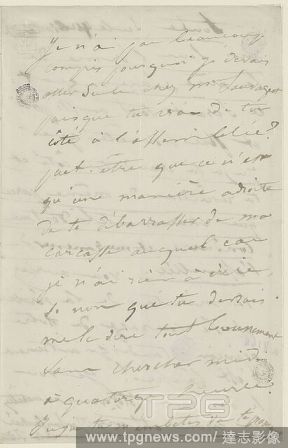 Je n'ai pas beaucoup
compris pourquoi je devais
aller seule chez Mr
puisque tu vas de ton
côté à l'assemblée?
peut-être que ce n'est
qu'une manière adroite
de te débarrasser de ma
carcasse auquel cas
je n'ai rien à dire
si non que tu devrais
me le dire tout bonnement
sans chercher midi
à quatorze heures.
TPG
www.tpgnews.com/達志影像